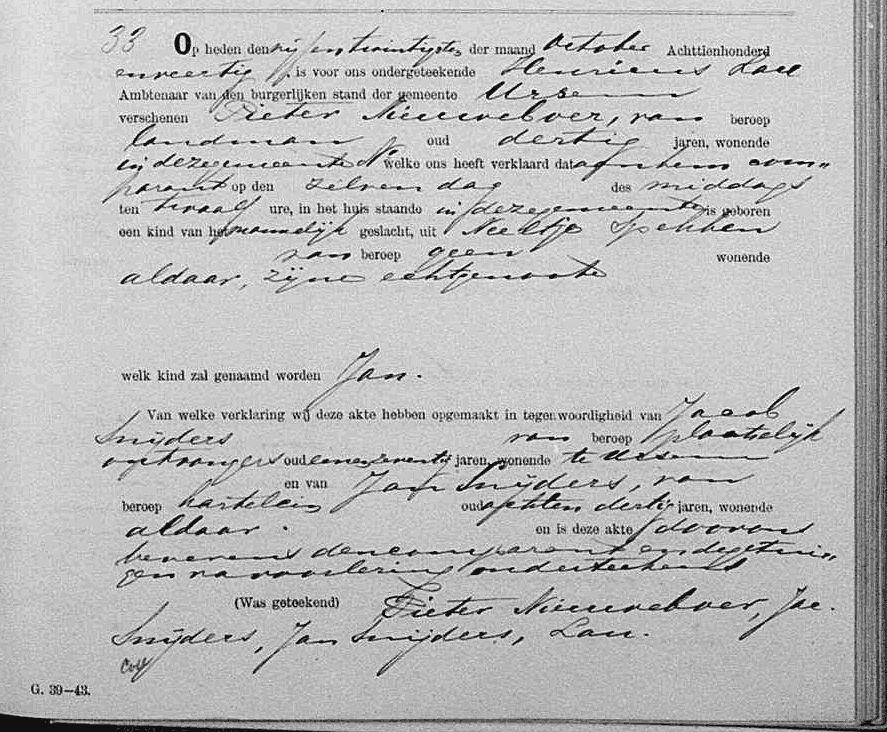 33 Op heden den vijf en twintigsten der maand October Achttienhonderd
en veertig, is voor ons ondergeteekende Henricus Lau
Ambtenaar van den burgerlijken stand der gemeente Ursem
verschenen Pieter Nieuweboer, van beroep
landman oud dertig jaren, wonende
in deze gemeente welke ons heeft verklaard dat aan hem com„
parant op den zelven dag des middags
ten twaalf ure, in het huis staande in deze gemeente is geboren
een kind van het mannelijk geslacht, uit Neeltje Spekken
van beroep geen wonende
aldaar, zijne echtgenoote
welk kind zal genaamd worden Jan.
Van welke verklaring wij deze akte hebben opgemaakt in tegenwoordigheid van Jacob
Snijders van beroep plaatselijk
ontvanger oud een en zeventig jaren, wonende te Ursem
en van Jan Snijders, van
beroep kastelein oud acht en dertig jaren, wonende
aldaar. en is deze akte door ons
benevens den comparant en de getui„
gen na voorlezing onderteekend
(Was geteekend) Pieter Nieuweboer, Jac.
Snijders, Jan Snijders, Lau.
G. 39–43.